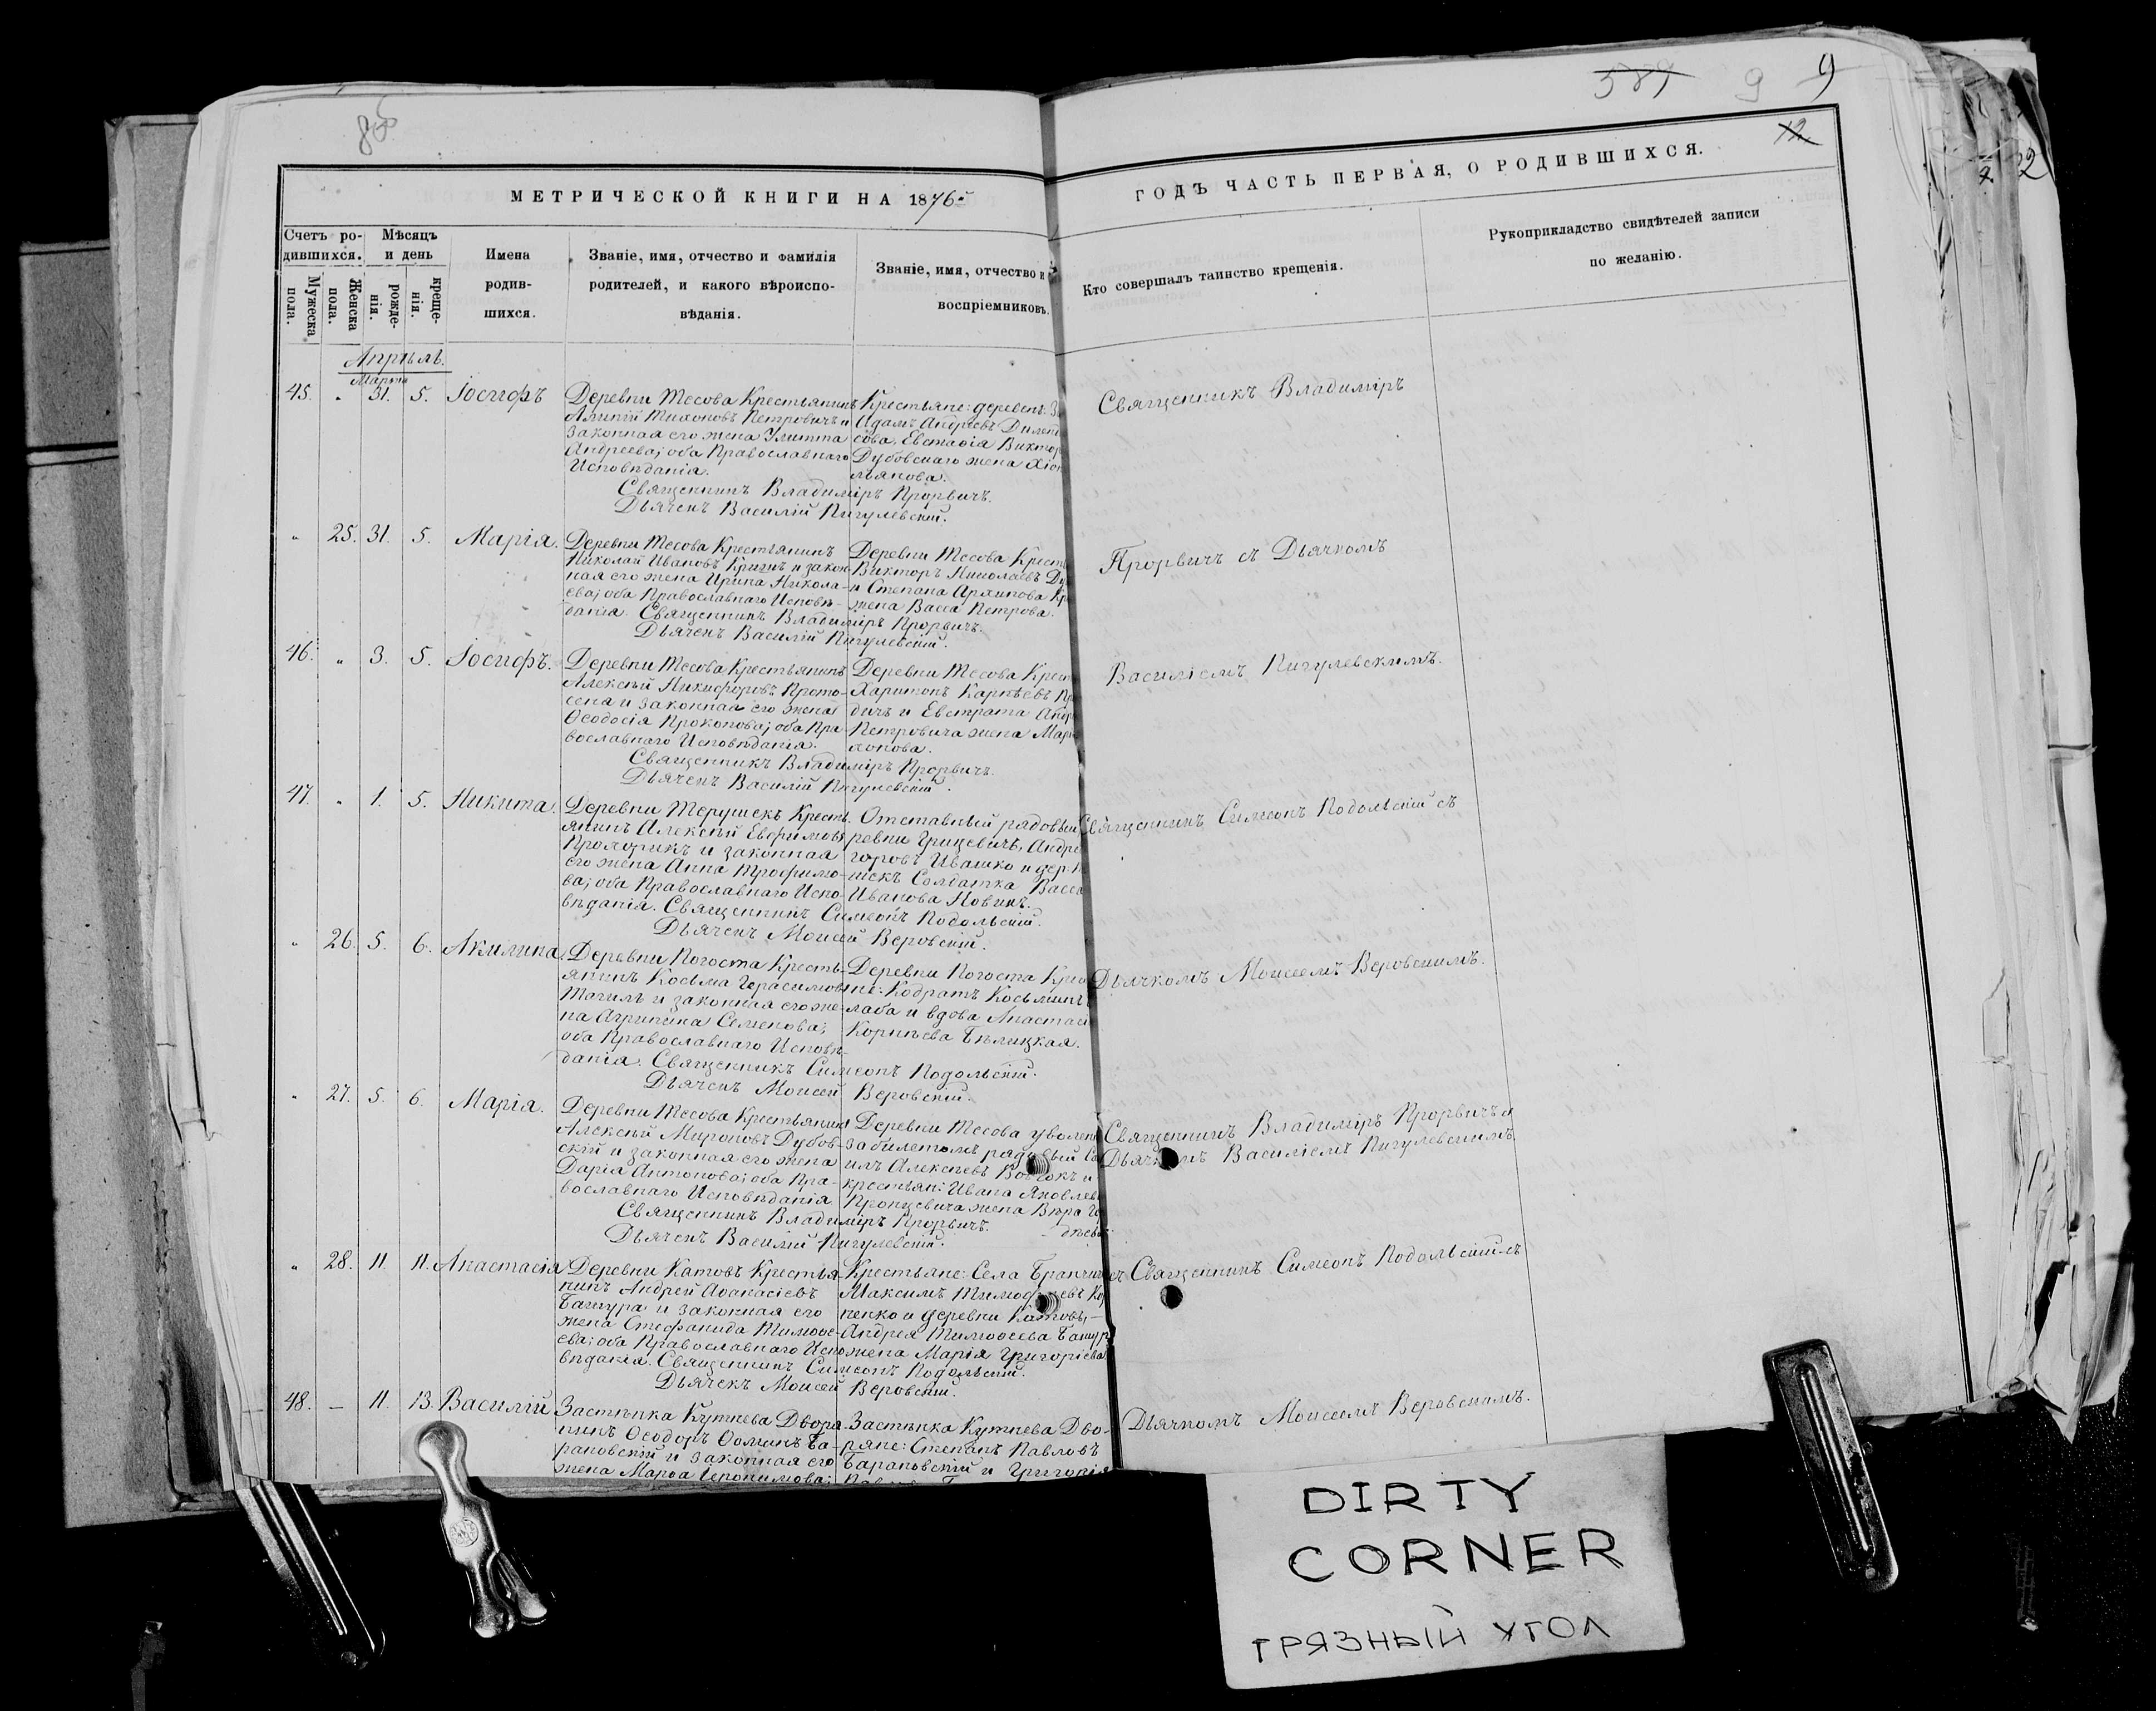 589 9 9
12
МЕТРИЧЕСКОЙ КНИГИ НА 1876й
ГОДЪ ЧАСТЬ ПЕРВАЯ, О РОДИВШИХСЯ.
Счетъ ро-
дившихся.
Мужеска
пола.
Женска
пола.
Мѣсяцъ
и день
рожде-
нія.
креще-
нія.
Имена
родив-
шихся.
Званіе, имя, отчество и фамилія
родителей, и какого вѣроиспо-
вѣданія.
Званіе, имя, отчество и
воспріемниковъ.
Кто совершалъ таинство крещенія.
Рукоприкладство свидѣтелей записи
по желанію.
Апрѣль.
Марта
45. " 31. 5. Іосифъ
Деревни Тесова Крестьянинъ
Алипій Тихоновъ Петровичъ и
законная его жена Улитта
Андреева; оба Православнаго
Исповѣданія.
Крестьяне: деревень: З
Адамъ Андреевъ
сова, Евстафія Виктор
Дубовскаго жена Хіон
мянова.
Священникъ Владиміръ Прорвичъ.
Дьячекъ Василій Пигулевскій.
Священникъ Владиміръ
" 25. 31. 5. Марія.
Деревни Тесова Крестьянинъ
Николай Ивановъ и закон-
ная его жена Ирина Никола-
ева; оба Православнаго Исповѣ-
данія. Священникъ Владиміръ Прорвичъ.
Дьячекъ Василій Пигулевскій.
Деревни Тесова Кресть
Викторъ Николаевъ Ду
и Степана Архипова Кр
жена Васса Петрова.
Прорвичъ съ Дьячкомъ
46. " 3. 5. Іосифъ.
Деревни Тесова Крестьянинъ
Алексѣй Никифоровъ Прото-
сеня и законная его жена
Ѳеодосія Прокопова; оба Пра-
вославнаго Исповѣданія.
Деревни Тесова Крест
Харитонъ Карпѣевъ
дичъ и Евстрата Андр
Петровича жена Мар
попова.
Священникъ Владиміръ Прорвичъ.
Дьячекъ Василій Пигулевскій.
Василіемъ Пигулевскимъ.
47. " 1. 5. Никита.
Деревни Терушекъ Кресть-
янинъ Алексѣй Евфимовъ
и законная
его жена Анна Трофимо-
ва; оба Православнаго Испо-
вѣданія. Священникъ Симеонъ Подольскій.
Дьячекъ Моисей Веровскій.
Отставный рядовый
ревни Грицевичъ, Андре
горовъ Ивашко и дер.
шекъ Солдатка Васса
Иванова Новикъ.
Священникъ Симеонъ Подольскій съ
" 26. 5. 6. Акилина.
Деревни Погоста Кресть-
янинъ Косьма Герасимовъ
и законная его же-
на Агрипина Семенова;
оба Православнаго Исповѣ-
данія. Священникъ Симеонъ Подольскій.
Дьячекъ Моисей Веровскій.
Деревни Погоста Крес
не: Кодратъ Косьминъ
лаба и вдова Анастасі
Корнѣева Бѣлицкая.
Дьячкомъ Моисеемъ Веровскимъ.
" 27. 5. 6. Марія.
Деревни Тесова Крестьянинъ
Алексѣй Мироновъ Дубов-
скій и законная его жена
Дарія Антонова; оба Пра-
вославнаго Исповѣданія
Священникъ Владиміръ Прорвичъ.
Дьячекъ Василій Пигулевскій.
Деревни Тесова уволен
за билетомъ рядовый
илъ Алексѣевъ и
крестьян: Ивана Яковлев
жена Вѣра
дѣева.
Священникъ Владиміръ Прорвичъ и
Дьячкомъ Василіемъ Пигулевскимъ.
" 28. 11. 11. Анастасія
Деревни Катовъ Крестья-
нинъ Андрей Аѳанасіевъ
Башура и законная его
жена Стефанида Тимоѳе-
ева; оба Православнаго Испо-
вѣданія. Священникъ Симеонъ Подольскій.
Дьячекъ Моисей Веровскій.
Крестьяне: Села
Максимъ Тимоѳеевъ Ко
ненко и деревни Катовъ,
Андрея Тимоѳеева Башур
жена Марія Григоріева.
Священникъ Симеонъ Подольскій съ
48. — 11. 13. Василій
Застѣнка Кутнева Дворя-
нинъ Ѳеодоръ Ѳоминъ Ба-
рановскій и законная его
жена Марѳа Іеронимова;
Застѣнка Кутнева Дво-
ряне: Степанъ Павловъ
Барановскій и Григорія
Дьячкомъ Моисеемъ Веровскимъ.
DIRTY
CORNER
ГРЯЗНЫЙ УГОЛ